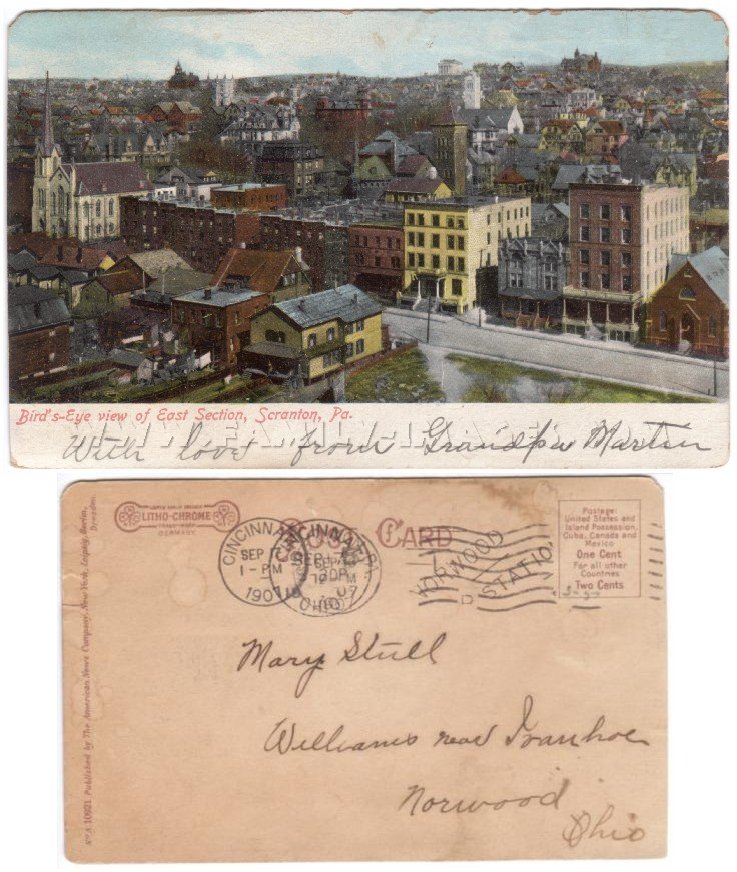 Bird's-Eye view of East Section, Scranton, Pa.
With love from Grandpa Martin
LITHO-CHROME
GERMANY.
POST CARD
CINCINNATI
SEP 7
1-PM
1907
OHIO
NORWOOD
STATION
Postage:
United States and
Island Possession,
Cuba, Canada and
Mexico
One Cent
For all other
Countries
Two Cents
Mary Stull
Williams near Ivanhoe
Norwood
Ohio
No A 10921 Published by The American News Company, New York, Leipzig, Berlin,
Dresden.